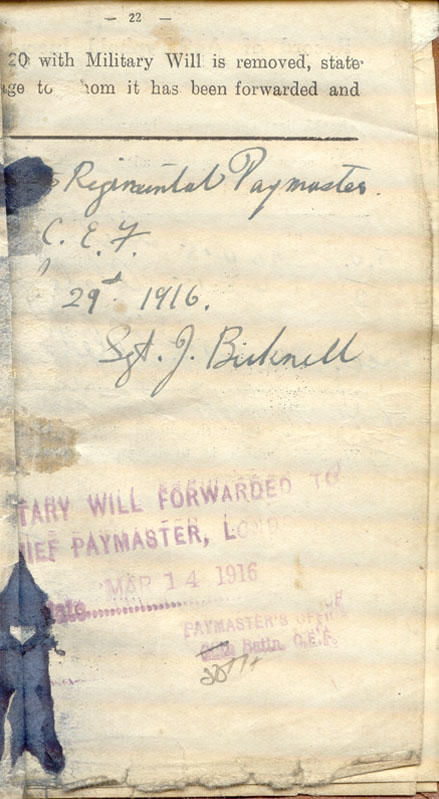 — 22 —
20 with Military Will is removed, state
to hom it has been forwarded and
Regimental Paymaster.
C. E. F.
29 1916.
Sgt. J. Bicknell
TARY WILL FORWARDED TO
IEF PAYMASTER, LOND
MAR 14 1916
PAYMASTER'S OFFICE
Battn. C.E.F.